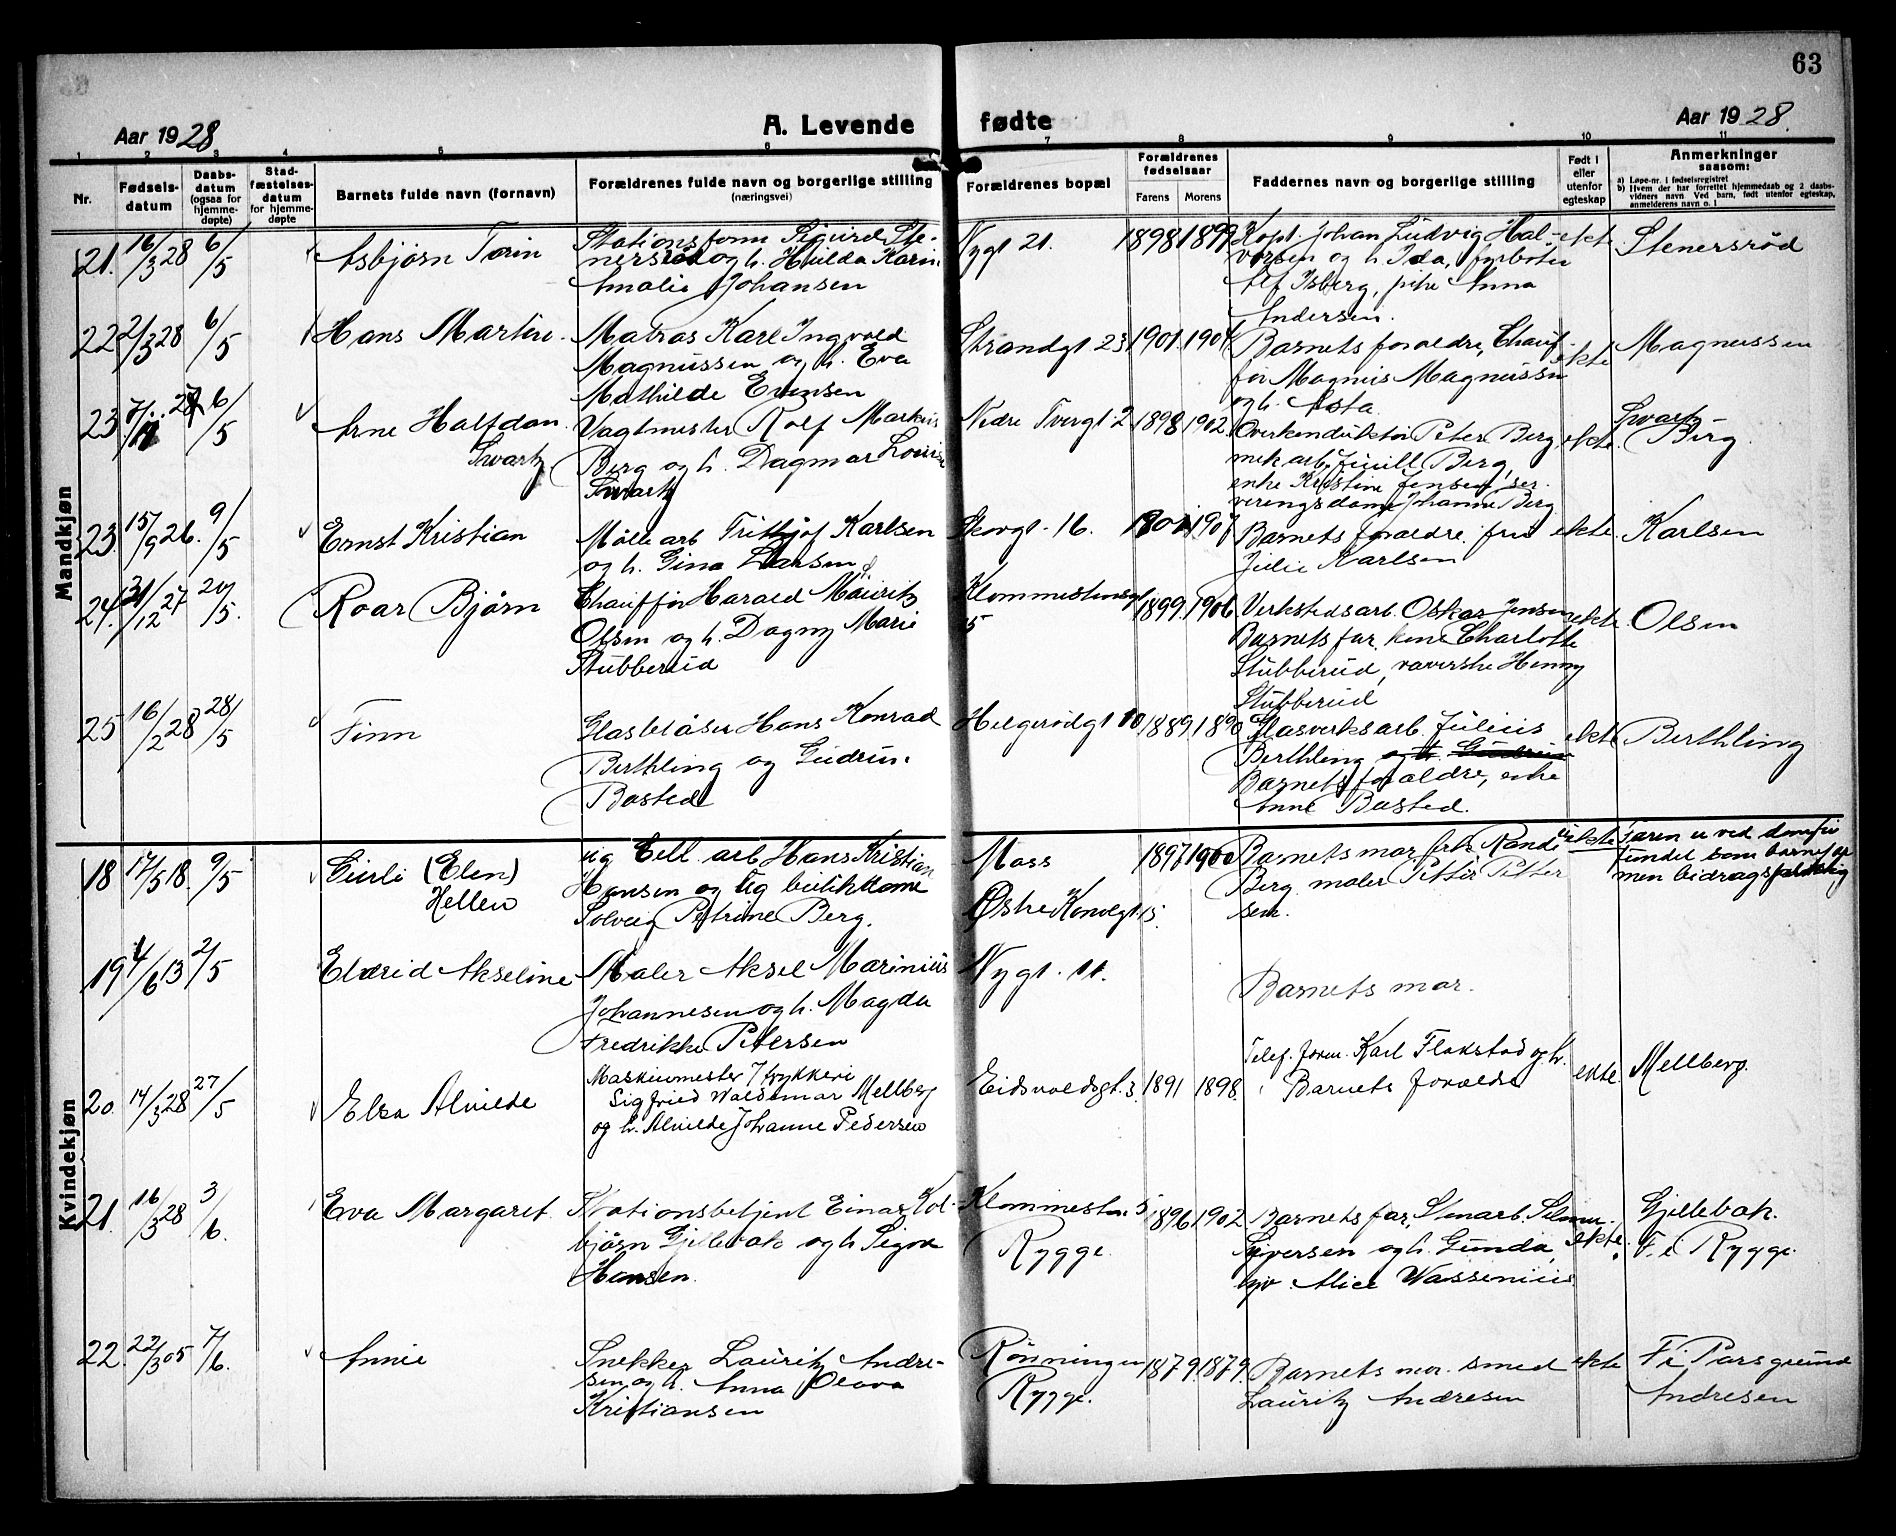 63
Aar 1928
A. Levende fødte
Aar 1928.
1 2 3 4 5 6 7 8 9 10 11
Nr.
Fødsels-
datum
Daabs-
datum
(ogsaa for
hjemme-
døpte)
Stad-
fæstelses-
datum
for hjemme-
døpte
Barnets fulde navn (fornavn)
Forældrenes fulde navn og borgerlige stilling
(næringsvei)
Forældrenes bopæl
Forældrenes
fødselsaar
Farens Morens
Faddernes navn og borgerlige stilling
Født i
eller
utenfor
egteskap
Anmerkninger
saasom:
a) Løpe-nr. i fødselsregistret
b) Hvem der har forrettet hjemmedaab og 2 daabs-
vidners navn Ved barn, født utenfor egteskap,
anmelderens navn o. l
Mandkjøn
21. 16/3 28 6/5
Asbjørn Torin
Stationsform Sigurd Ste-
nersrød og h. Hulda Karin
Amalie Johansen
Nygt 21.
1898 1899
Kapt. Johan Ludvig Hal-
vorsen og h. Ida, fyrbøter
Alf Isberg, pike Anna
Andersen.
ekte
Stenersrød
22 2/3 28 6/5
Hans Martin.
Matros Karl Ingvald
Magnussen og h. Eva
Mathilde Evensen
Strandgt 23
1901. 1904
Barnets foraldre, Chauf-
før Magnus Magnussen
og h. Asta.
ekte
Magnussen
23 6/5
Arne Halfdan
Swartz
Vagtmester Rolf Markus
Berg og h. Dagmar Louise
Swartz
Nedre Tvergt 2
1898 1902.
Overkonduktør Peter Berg,
mek arb. Berg,
enke Kristine Jensen, ser-
veringsdame Johanne Berg
ekte
Swartz
Berg.
23. 15/9 26. 9/5
Ernst Kristian
Mølle arb Frithjof Karlsen
og h. Gina Larsen
Skovgt. 16.
1907
Barnets foraldre. fru
Julie Karlsen
ekte
Karlsen
24. 31/12 27 20/5.
Roar Bjørn
Chauffør Harald Mauritz
Olsen og h. Dagny Marie
Stubberud
5
1899. 1906
Verkstedsarb. Oskar Jensen
Barnets far. kone Charlotte
Stubberud, væverske Henny
Stubberud
ekte
Olsen
25 16/2 28 28/5
Finn
Glasblåser Hans Konrad
Berthling og Gudrun
Basted
Helgerødgt 10
1889. 1890
Glasverksarb. Julius
Berthling og h. Gudrun
Barnets foraldre, enke
Anne Basted.
ekte
Berthling
Kvindekjøn
18 17/5 18. 9/5
Gurli (Elen)
Hellen
ug Cell. arb Hans Kristian
Hansen og ug butikkdame
Solveig Petrine Berg.
Moss
Østre Kanalgt. 15.
1897 1900
Barnets mor, Randi
Berg. maler Petter Petter
sen.
uekte
Faren er ved dom
fundet som barnet
men bidragspliktig
19 4/6 13 2/5
Eldrid Akseline
Maler Aksel Marinius
Johannesen og h. Magda
Fredrikke Petersen
Nygt. 11.
Barnets mor.
20. 14/3 28 27/5
Elsa Alvilde
Maskinmester I trykkeri
Sigfried Waldemar Mellberg
og h. Alvilde Johanne Pedersen
Eidsvoldsgt. 3
1891 1898.
Telef. form. Karl Flakstad og h.
Barnets foraldre
ekte
Mellberg.
21. 16/3 28 3/6.
Eva Margaret
Stationsbetjent Einar Kol-
bjørn Gjillebak og h Signe
Hansen.
Klommesten 5
Rygge.
1896 1902
Barnets far, Stenarb.
Syversen og h. Gunda,
Alice Wassenius
ekte.
Gjillebak.
F. i Rygge.
22. 22/3 05 7/6.
Annie
Snekker Lauritz Andre-
sen og h. Anna Olava
Kristiansen
Rønningen
Rygge.
1879. 1879.
Barnets mor. smed
Lauritz Andresen
ekte
F i Porsgrund
Andresen